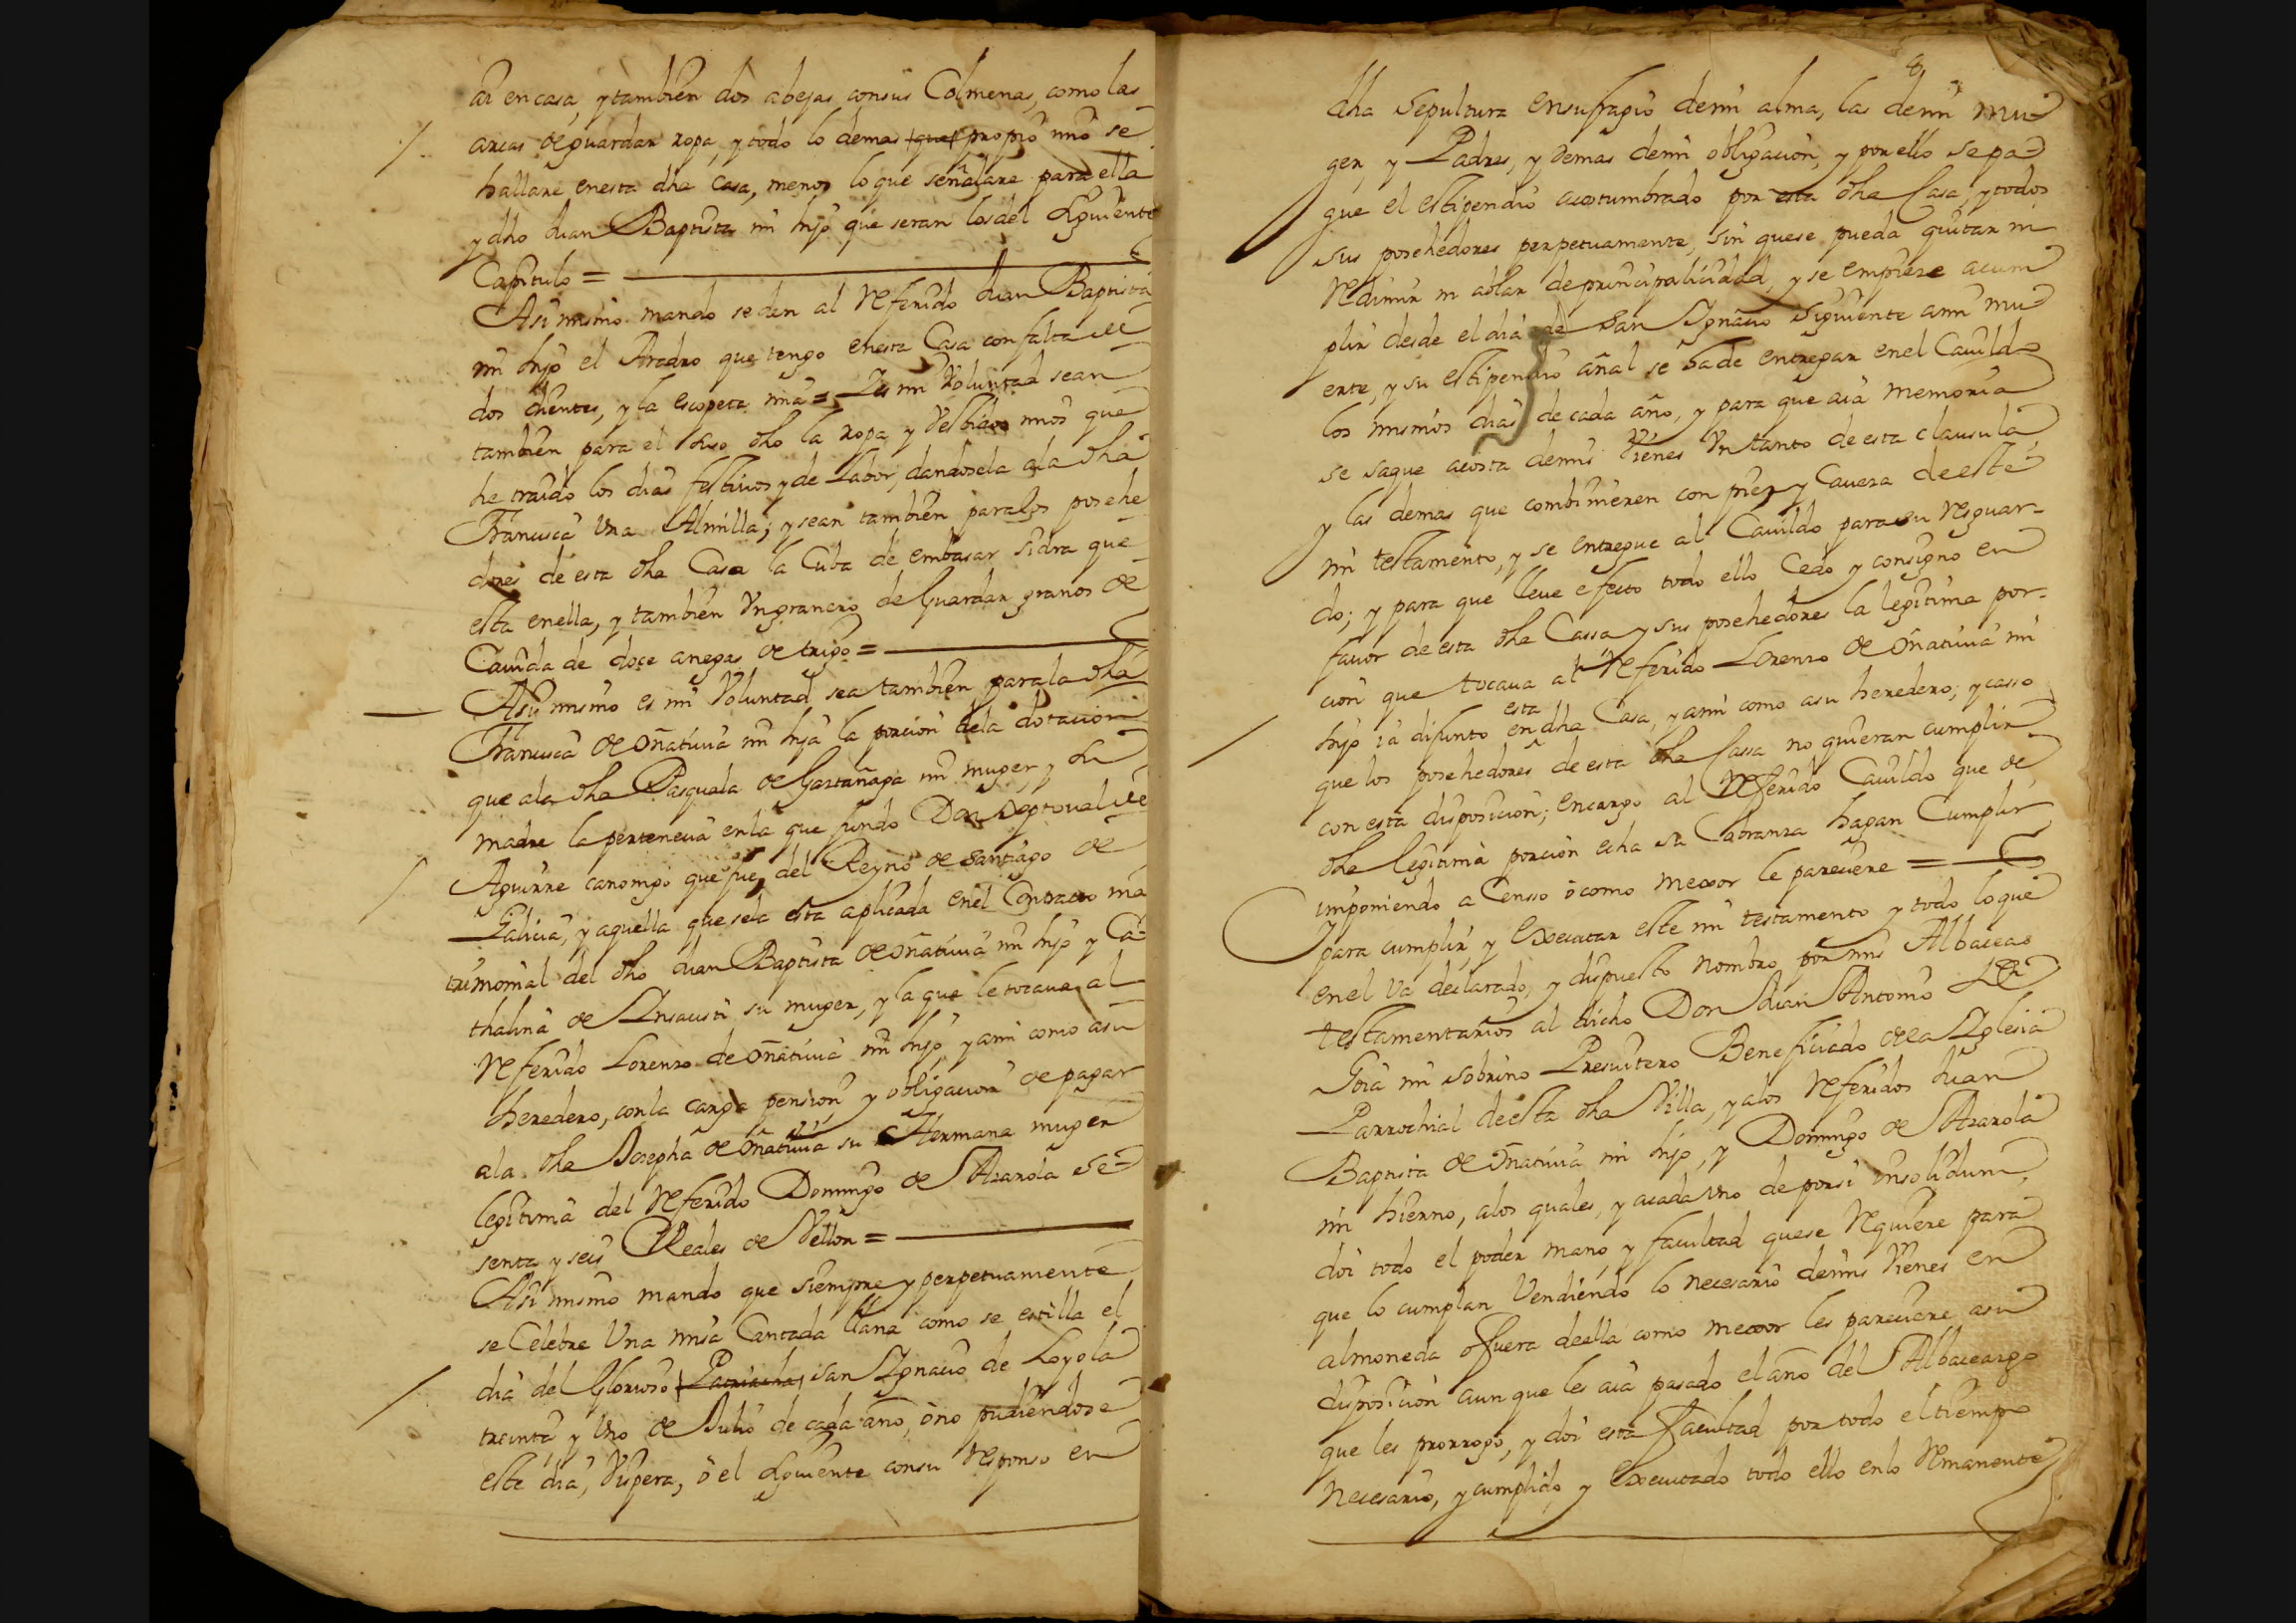 ai en casa, y tambien dos abejas consus Colmenas, como las
arcas de guardar ropa, y todo lo demas que propio mio se
hallare enesta dha casa, menos lo que señalare para ella
y dho Juan Baptista mi hijo que seran los del siguiente
Capitulo =
Asi mismo mando se den al Referido Juan Baptista
mi hijo el Aradro que tengo enesta Casa con falta de
dos dientes, y la escopeta mia = Y es mi Voluntad sean
tambien para el suso dho la ropa y Vestidos mios que
he traido los dias festivos y de Labor, dandosela ala dha
Francisca Una Almilla; y sean tambien para los posehe
dores de esta dha Casa la Cuba de embasar sidra que
esta enella, y tambien Un granero de Guardar granos de
Cavida de doçe anegas de trigo =
Asi mismo es mi Voluntad sea tambien para la dha
Francisca de Oñativia mi hija la porcion dela dotacion
que ala dha Pasquala de Gastañaga mi muger, y su
madre la pertenecia enla que fundo Don Xptoual de
Aguirre canonigo que fue del Reyno de Santiago de
Galicia, y aquella que sela esta aplicada enel Contrato ma
trimonial del dho Juan Baptista de Oñativia mi hijo y Ca-
thalina de Insausti su muger, y la que le tocava al
Referido Lorenzo de Oñativia mi hijo y ami como asu
heredero, conla carga pension y obligacion de pagar
ala dha Josepha de Oñativia su Hermana muger
legitima del Referido Domingo de Azarola se-
senta y seis Reales de Vellon =
Asi mismo mando que siempre y perpetuamente
se Celebre Una misa Cantada llana como se estilla el
dia del Glorioso Patriarcha san Ygnacio de Loyola
treinta y Uno de Julio de cada año, ò no pudiendose
este dia, Vispera, ò el siguiente consu responso en
8
dha Sepultura ensufragio demi alma, las demi mu-
ger, y Padres, y demas demi obligacion, y por ello se pa-
gue el estipendio acostumbrado por esta dha Casa, y todos
sus posehedores perpetuamente, sin quese pueda quitar ni
Redimir ni ablar de principalicidad, y se empieze acum
plir desde el dia de San Ygnacio siguiente ami mu
erte, y su estipendio añal se ha de entregar enel Cavildo
los mismos dias de cada año, y para que aia memoria
se saque acosta demis Vienes Un tanto de esta clausula
y las demas que combinieren con pie y Caveza de este
mi testamento, y se entregue al Cavildo para su resguar-
do; y para que lleve efecto todo ello Cedo y consigno en
favor de esta dha Cassa y sus posehedores la legitima por-
cion que tocava al Referido Lorenzo de Oñativia mi
esta
hijo ia difunto en dha Casa, y ami como asu heredero; y casso
que los posehedores de esta dha Cassa no quieran cumplir
con esta disposicion; encargo al Referido Cavildo que de
dha legitima porcion echa su Cobranza hagan Cumplir
imponiendo a Censso ò como mexor le pareciere =
Y para cumplir, y Executar este mi testamento y todo lo que
enel Va declarado, y dispuesto nombro por mis Albaceas
testamentarios al dicho Don Juan Antonio de
Goia mi sobrino Presvitero Beneficiado de la Yglesia
Parrochial de esta dha Villa, y alos Referidos Juan
Baptista de Oñativia mi hijo, y Domingo de Azarola
mi hierno, alos quales, y acada Uno de porsi insolidum,
doi todo el poder mano, y facultad quese Requiere para
que lo cumplan Vendiendo lo necesario demis Vienes en
almoneda ofuera deella como mexor les pareciere asu
disposicion aun que les aia pasado el año del Albaceazgo
que les prorrogo, y doi esta facultad por todo el tiempo
Necesario, y cumplido y Executado todo ello enlo Remanente